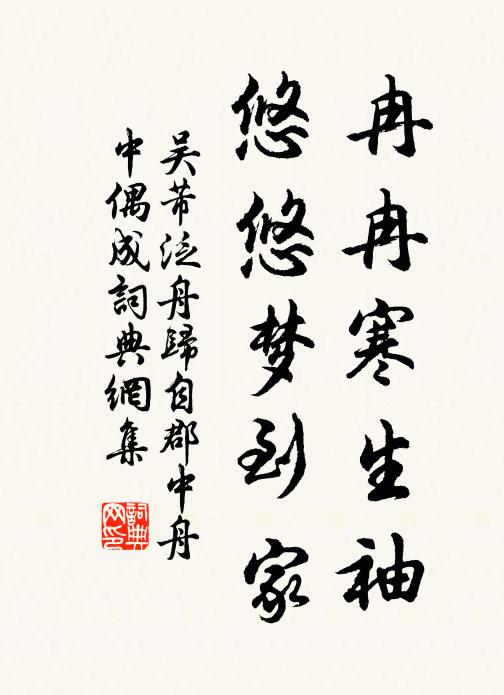 冉冉寒生袖
悠悠梦到家
吴芾泛舟歸自郡中舟
中偶成詞典網集
詞典
网印